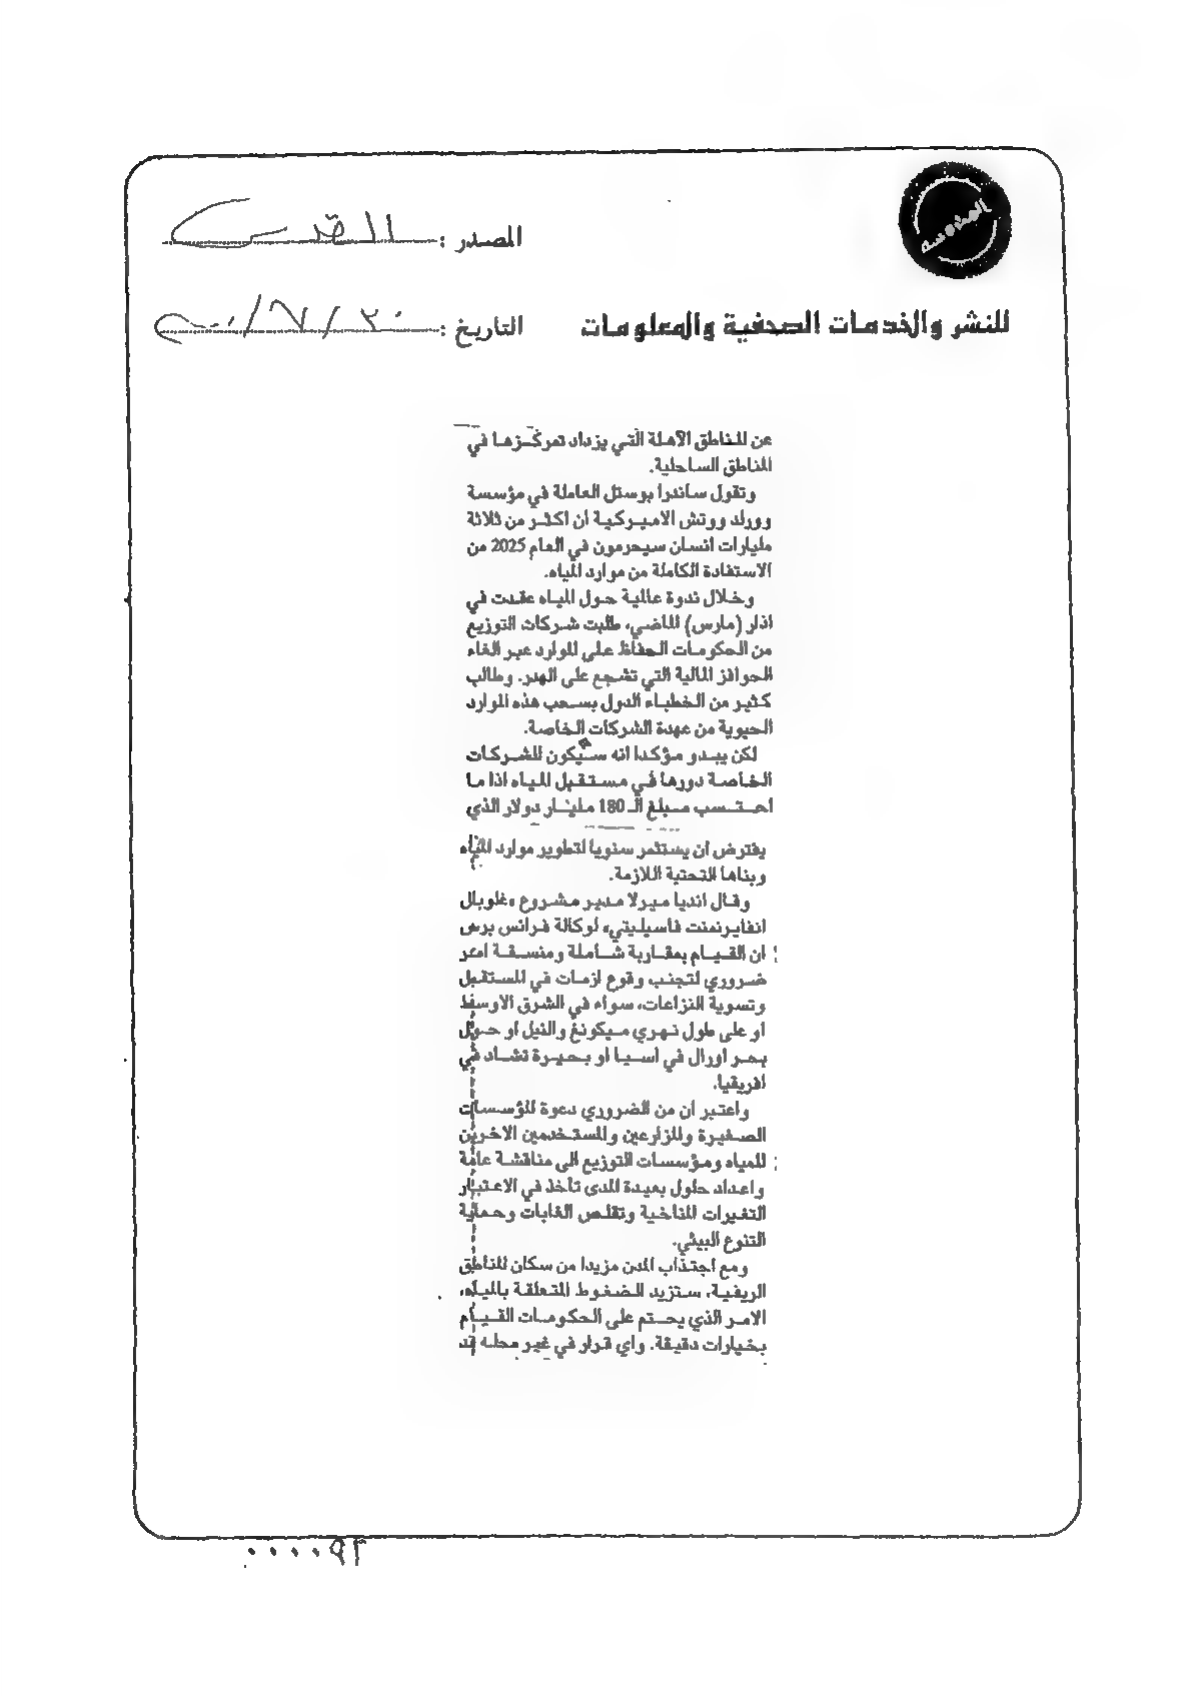 المحروسة
المصدر : القدس
للنشر والخدمات الصحفية والمعلومات
التاريخ : ٢٠ / ٧ /
عن المناطق الآهلة التي يزداد تمركزها في
المناطق الساحلية.
وتقول ساندرا بوستل العاملة في مؤسسة
وورلد ووتش الاميركية ان اكثر من ثلاثة
مليارات انسان سيحرمون في العام 2025 من
الاستفادة الكاملة من موارد المياه.
وخلال ندوة عالمية حول المياه عقدت في
اذار (مارس) الماضي، طلبت شركات التوزيع
من الحكومات الحفاظ على الموارد عبر الغاء
الحوافز المالية التي تشجع على الهدر. وطالب
كثير من الخطباء الدول بسحب هذه الموارد
الحيوية من عهدة الشركات الخاصة.
لكن يبدو مؤكدا انه سيكون للشركات
الخاصة دورها في مستقبل المياه اذا ما
احتسب مبلغ الـ 180 مليار دولار الذي
يفترض ان يستثمر سنويا لتطوير موارد المياه
وبناها التحتية اللازمة.
وقال انديا ميرلا مدير مشروع «غلوبال
انفايرنمنت فاسيليتي» لوكالة فرانس برس
ان القيام بمقاربة شاملة ومنسقة امر
ضروري لتجنب وقوع ازمات في المستقبل
وتسوية النزاعات، سواء في الشرق الاوسط
او على طول نهري ميكونغ والنيل او حول
بحر اورال في اسيا او بحيرة تشاد في
افريقيا.
واعتبر ان من الضروري دعوة المؤسسات
الصغيرة والمزارعين والمستخدمين الاخرين
للمياه ومؤسسات التوزيع الى مناقشة عامة
واعداد حلول بعيدة المدى تأخذ في الاعتبار
التغيرات المناخية وتقلص الغابات وحماية
التنوع البيئي.
ومع اجتذاب المدن مزيدا من سكان المناطق
الريفية، ستزيد الضغوط المتعلقة بالمياه،
الامر الذي يحتم على الحكومات القيام
بخيارات دقيقة. واي قرار في غير محله قد
٠٠٠٠٩٣